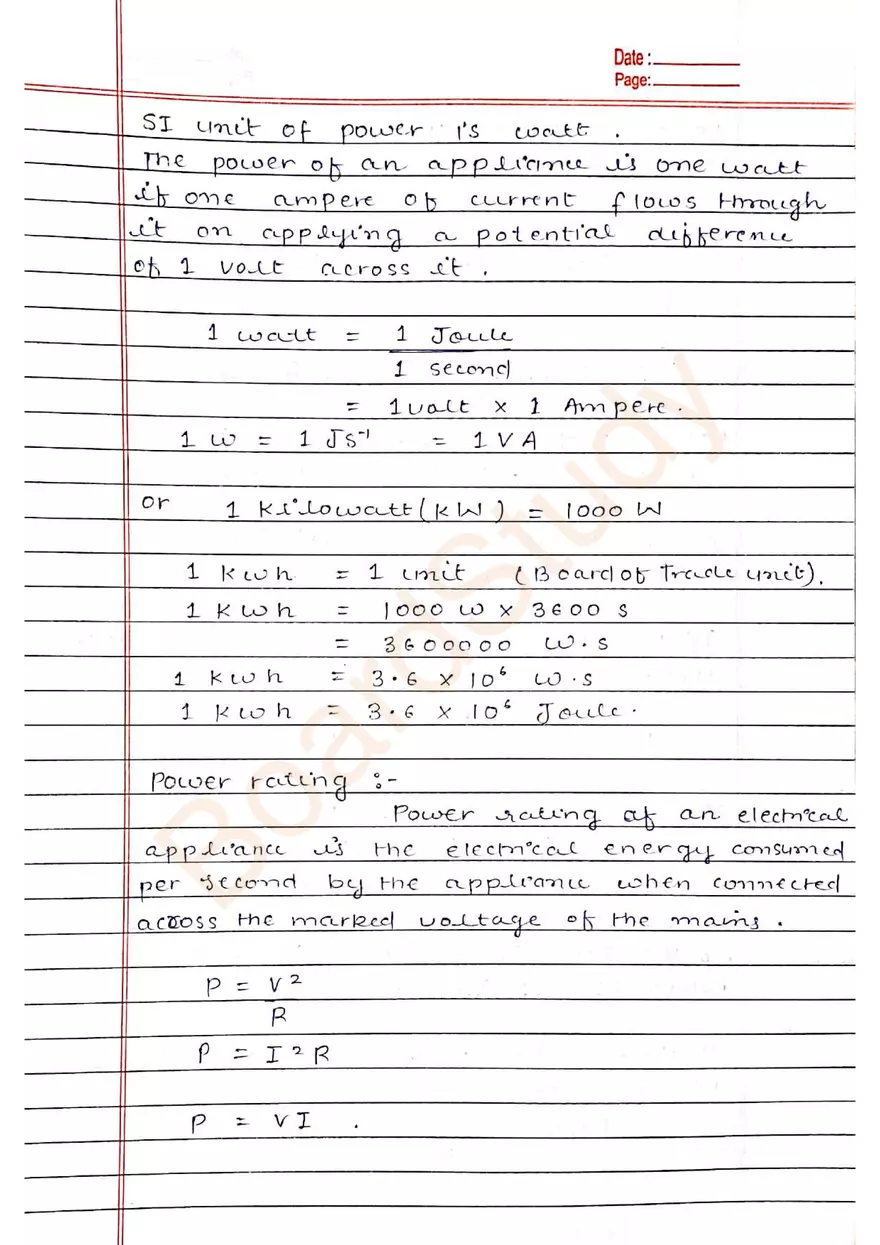 Date :
Page:
SI unit of power is watt .
The power of an appliance is one watt
if one ampere of current flows through
it on applying a potential difference
of 1 volt across it .
1 watt = 1 Joule
1 second
= 1 volt × 1 Ampere .
1 W = 1 JS⁻¹ = 1 V A
or 1 Kilowatt (KW) = 1000 W
1 Kwh = 1 unit (Board of Trade unit).
1 Kwh = 1000 w × 3600 s
= 3600000 w.s
1 Kwh = 3.6 × 10⁶ w.s
1 Kwh = 3.6 × 10⁶ Joule.
Power rating :-
Power rating of an electrical
appliance is the electrical energy consumed
per second by the appliance when connected
across the marked voltage of the mains .
P = V²
R
P = I²R
P = VI .
BoardStudy